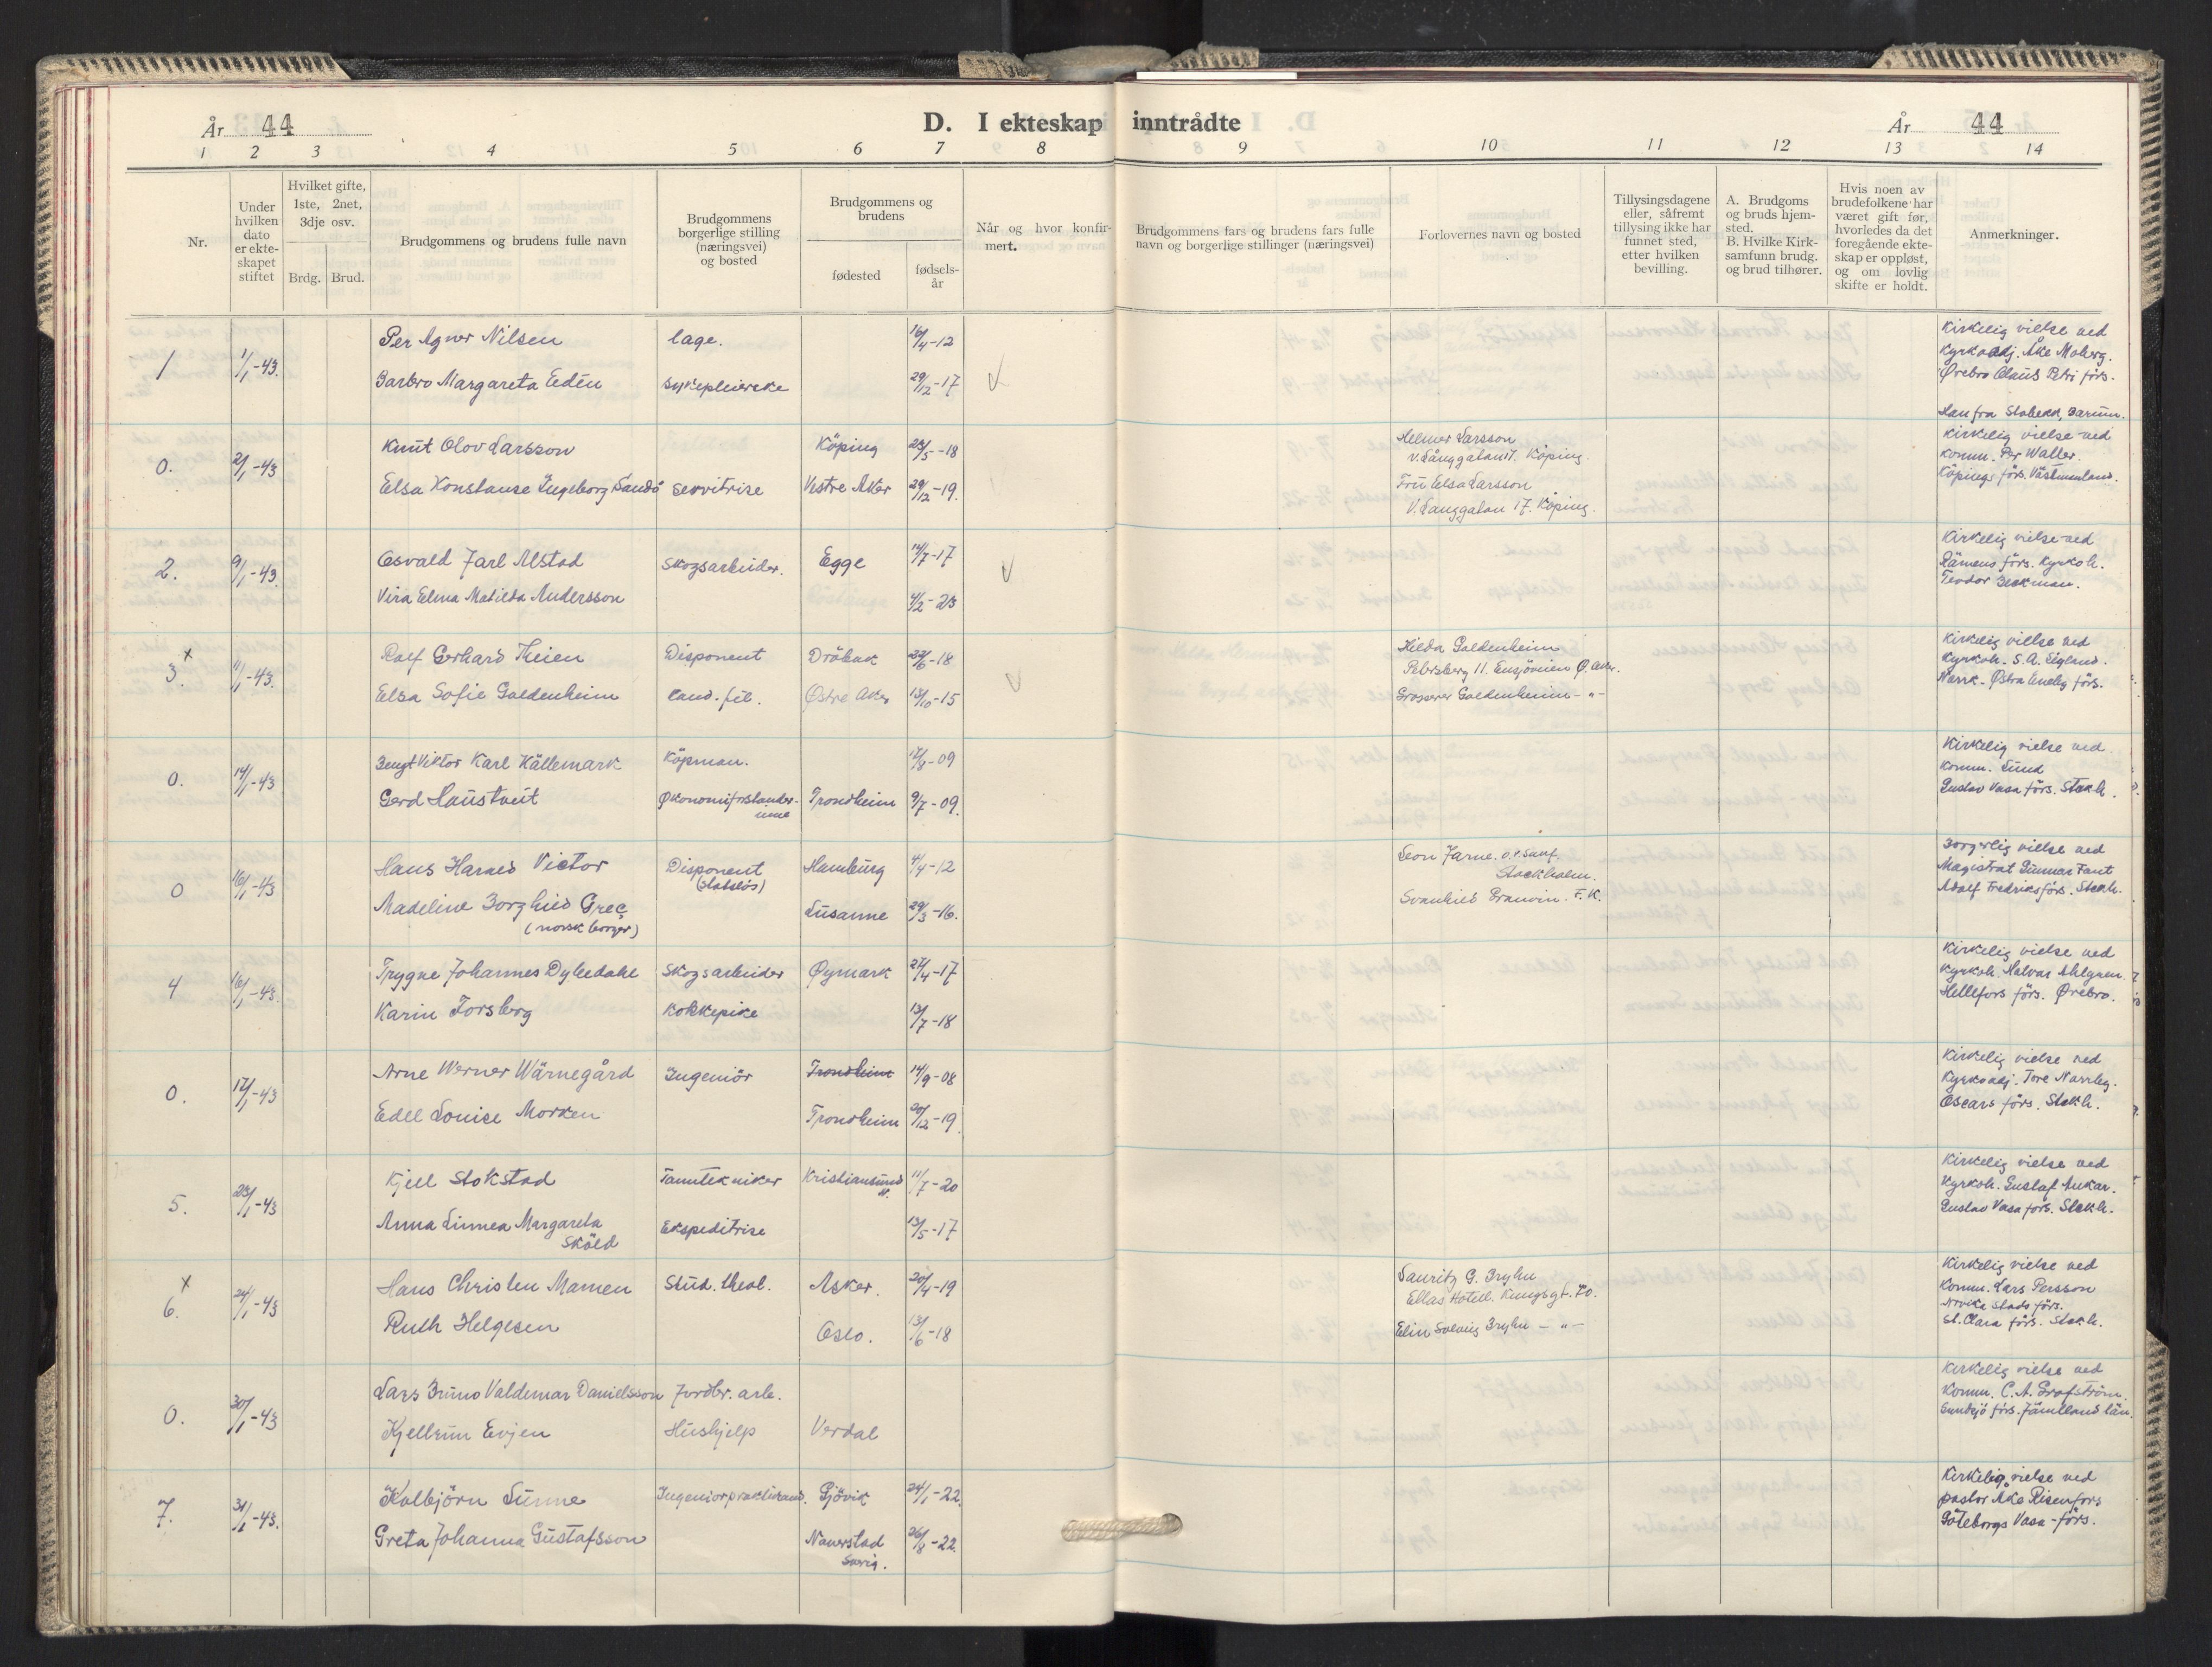 År 44
D. I ekteskap inntrådte
År 44
1 2 3 4 5 6 7 8 9 10 11 12 13 14
Nr.
Under hvilken dato er ekteskapet stiftet
Hvilket gifte, 1ste, 2net, 3dje osv.
Brdg. Brud.
Brudgommens og brudens fulle navn
Brudgommens borgerlige stilling (næringsvei) og bosted
Brudgommens og brudens
fødested
fødselsår
Når og hvor konfirmert.
Brudgommens fars og brudens fars fulle navn og borgerlige stillinger (næringsvei)
Forlovernes navn og bosted
Tillysingsdagene eller, såfremt tillysing ikke har funnet sted, etter hvilken bevilling.
A. Brudgoms og bruds hjemsted.
B. Hvilke Kirksamfunn brudg. og brud tilhører.
Hvis noen av brudefolkene har været gift før, hvorledes da det foregående ekteskap er oppløst, og om lovlig skifte er holdt.
Anmerkninger.
1 1/1-43. Per Agner Nilsen lage. 16/4-12
Barbro Margareta Edén sykepleierske 29/12-17 ✓
Kirkelig vielse ved
Kyrkoadj. Åke Moberg.
Örebro Olaus Petri förs.
Han fra Stabekk, Bærum.
0. 2/1-43 Knut Olov Larsson Köping 23/5-18 Helmer Larsson
V. Långgatan 17. Köping.
Elsa Konstanse Ingeborg Sandö servitrise Vestre Aker 29/12-19. Fru Elsa Larsson
V. Langgatan 17. Köping.
Kirkelig vielse ved
Komm. Per Waller.
Köpings förs. Västmanland.
2. 9/1-43. Osvald Jarl Alstad Skogsarbeider. Egge 14/7-17 ✓
Vira Elma Matilda Andersson 4/2-23
Kirkelig vielse ved
Rämens förs. Kyrkoh.
Teodor Beckman.
3. x 11/1-43. Rolf Gerhard Theien Disponent Dröbak 22/6-18 Hilda Goldenheim
Petersborg 11. Ensjöveien Ø. Aker.
Elsa Sofie Goldenheim cand. fil. Østre Aker 13/10-15 ✓ Grosserer Goldenheim - " -
Kirkelig vielse ved
Kyrkoh. S. A.
Norrk. Østra Eneby förs.
0. 14/1-43 Bengt Viktor Karl Källemark Köpman. 17/8-09
Gerd Haustveit Økonomiforstanderinne Trondheim 9/7-09.
Kirkelig vielse ved
Komm. Lund
Gustav Vasa förs. Stockh.
0 16/1-43 Hans Harald Victor Disponent (statslös) Hamburg 4/4-12 Leon Jarne.
Stockholm.
Madeline Borghild Greç (norsk borger) Lusanne 29/3-16. Svanhild Granvin. F. K.
Borgerlig vielse ved
Magistrat Gunnar Fant
Adolf Fredriks förs. Stockh.
4 16/1-43. Trygve Johannes Dybedahl Skogsarbeider Øymark 27/4-17
Karin Forsberg Kokkepike 13/7-18
Kirkelig vielse ved
Kyrkoh. Halvar Ahlgren.
Hellefors förs. Ørebro.
0. 17/1-43 Arne Werner Wärnegård Ingeniör Trondheim 14/9-08
Edel Louise Morken Trondheim 20/12-19.
Kirkelig vielse ved
Kyrkoadj. Tore Norrby.
Oscars förs. Stockh.
5. 23/1-43 Kjell Stokstad Tanntekniker Kristiansund N. 11/7-20
Anna Linnea Margareta Sköld Ekspeditrise 13/5-17
Kirkelig vielse ved
Kyrkoh. Gustaf Ankar.
Gustav Vasa förs. Stockh.
6. x 24/1-43 Hans Christen Mamen Stud. theol. Asker. 20/4-19 Lauritz G. Bryhn
Ellas Hotell. Kungsgt. 70.
Ruth Helgesen Oslo. 13/6-18 Elin Solveig Bryhn - " -
Kirkelig vielse ved
Komm. Lars Persson
Arvika stads förs.
St. Clara förs. Stockh.
0. 30/1-43 Lars Bruno Valdemar Danielsson Jordbr. arb.
Kjellrun Evjen Hushjelp Verdal
Kirkelig vielse ved
Komm. C. A. Grafström.
Sundsjö förs. Jämtland län.
7. 31/1-43. Kolbjörn Sunne Ingeniorpraktikand. Gjövik 24/1-22.
Greta Johanna Gustafsson Naverstad Sverig. 26/8-22
Kirkelig vielse ved
pastor Åke Risenfors
Göteborgs Vasa-förs.